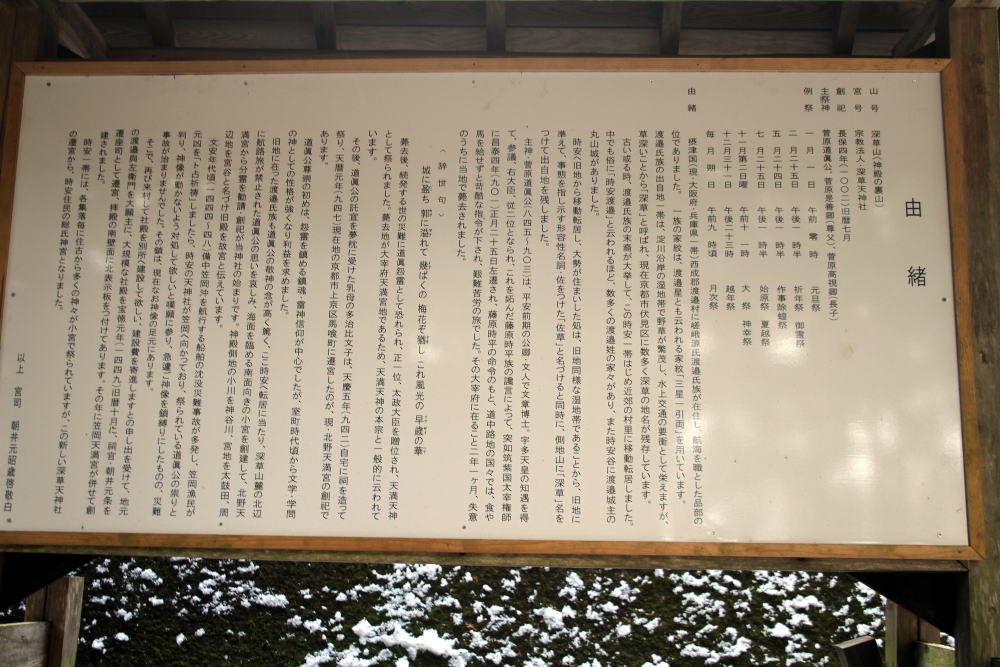 由緒
山号 深草山(神殿の裏山)
宮号 宗教法人・深草天神社
創祀 長保四年(一〇〇二)旧暦七月
主祭神 菅原道眞公、菅原是善卿(尊父)、菅原高視卿(長子)
例祭 一月一日 午前零時 元旦祭
二月二十五日 午後一時半 祈年祭 御霊祭
五月二十四日 午後一時半 作事除蝗祭
七月二十五日 午後一時半 始原祭 夏越祭
十月第二日曜 午前十一時 大祭 神幸祭
十二月三十一日 午後二十三時 越年祭
毎月朔日 午前九時頃 月次祭
由緒 摂津国(現・大阪府・兵庫県一帯)西成郡渡邉村に嵯峨源氏渡邉氏族が在住し、航海を職とした品部の
位でありました。 一族の家紋は、渡邉星とも云われる家紋「三星一引両」を用いています。
渡邉氏族の出自地一帯は、淀川沿岸の湿地帯で野草が繁茂し、水上交通の要衝として栄えますが、
草深いことから「深草」と呼ばれ、現在京都市伏見区に数多く深草の地名が残存しています。
古い或る時、渡邉氏族の末裔が大挙して、この時安一帯はじめ近郊の村里に移動転居しました。
中でも俗に「時安渡邉」と云われるほど、数多くの渡邉姓の家々があり、また時安谷に渡邉城主の
丸山城がありました。
時安へ旧地から移動転居し、大勢が住まいした処は、旧地同様な湿地帯であることから、旧地に
準えて、事態を指示し示す形容性名詞・佐をつけた「佐草」と名づけると同時に、側地山に「深草」名を
つけて出自地を残しました。
主神・菅原道眞公(八四五~九〇三)は、平安前期の公卿・文人で文章博士。宇多天皇の知遇を得
て、参議、右大臣、従二位となられ、これを妬んだ藤原時平族の讒言によって、突如筑紫国太宰権師
に昌泰四年(九〇一)正月二十五日左遷され、藤原時平の命令のもと、道中路地の国々では、食や
馬を給せずと苛酷な指令が下され、艱難苦労の旅でした。その大宰府に在ること二年一ヶ月、失意
のうちに当地で薨去されました。
(辞世句)
城に盈ち 郭に溢れて 幾ばくの 梅花ぞ猶し これ風光の 早歳の華
薨去後、続発する世の災難に道眞怨霊として恐れられ、正一位、太政大臣を贈位され、天満天神
として祭られました。薨去地が大宰府天満宮地であるため、天満天神の本宗と一般的に云われて
います。
その後、道眞公の託宣を夢枕に受けた乳母の多治比文子は、天慶五年(九四二)自宅に祠を造って
祭り、天暦元年(九四七)現在の京都市上京区馬喰町に遷宮したのが、現・北野天満宮の創祀で
あります。
道眞公尊崇の初めは、怨霊を鎮める鎮魂、雷神信仰が中心でしたが、室町時代頃から文学・学問
の神としての性格が強くなり利益を求めました。
旧地に在った渡邉氏族も道眞公の敬神の念が高く篤く、ここ時安へ転居に当たり、深草山麓の北辺
に航路旅が禁止された道眞公の思いを哀しみ、海面を臨める南面向きの小宮を創建して、北野天
満宮から分霊を勧請、創祀が地神社の始まりです。神殿側地の小川を神谷川、宮地を太鼓田、周
辺地を宮谷と名づけ旧殿を故宮と伝えています。
文安年代頃(一四四四~四八)備中笠岡沖を航行する船舶の沈没災難事故が多発し、笠岡漁民が
元凶を「占祈祷」しましたら、時安の天神社が笠岡へ向かっており、祭られている道眞公の祟りと
判り、神像が動かないよう対処して欲しいと嘆願に参り、急遽ご神像を鎖縛りにしたものの、災難
事故が治まりませんでした。その鎖は、現在なお神像の足元にあります。
そこで、再び来村して社殿を別所へ建設して欲しい、建設費を寄進しますとの申し出を受けて、地元
の渡邉與左衛門を大願主に、大規模な社殿を宝徳元年(一四四九)旧暦十月に、祠官・朝井元条を
遷座司として遷宮、拝殿の南壁面に北表示板をつけてあります。その年に笠岡天満宮が併せて創
建されました。
時安一帯には、各集落毎に往古から多くの神々が小宮で祭られていますが、この新しい深草天神社
の遷宮から、時安住民の総氏神宮となりました。
以上 宮司 朝井元昭歳啓敬白